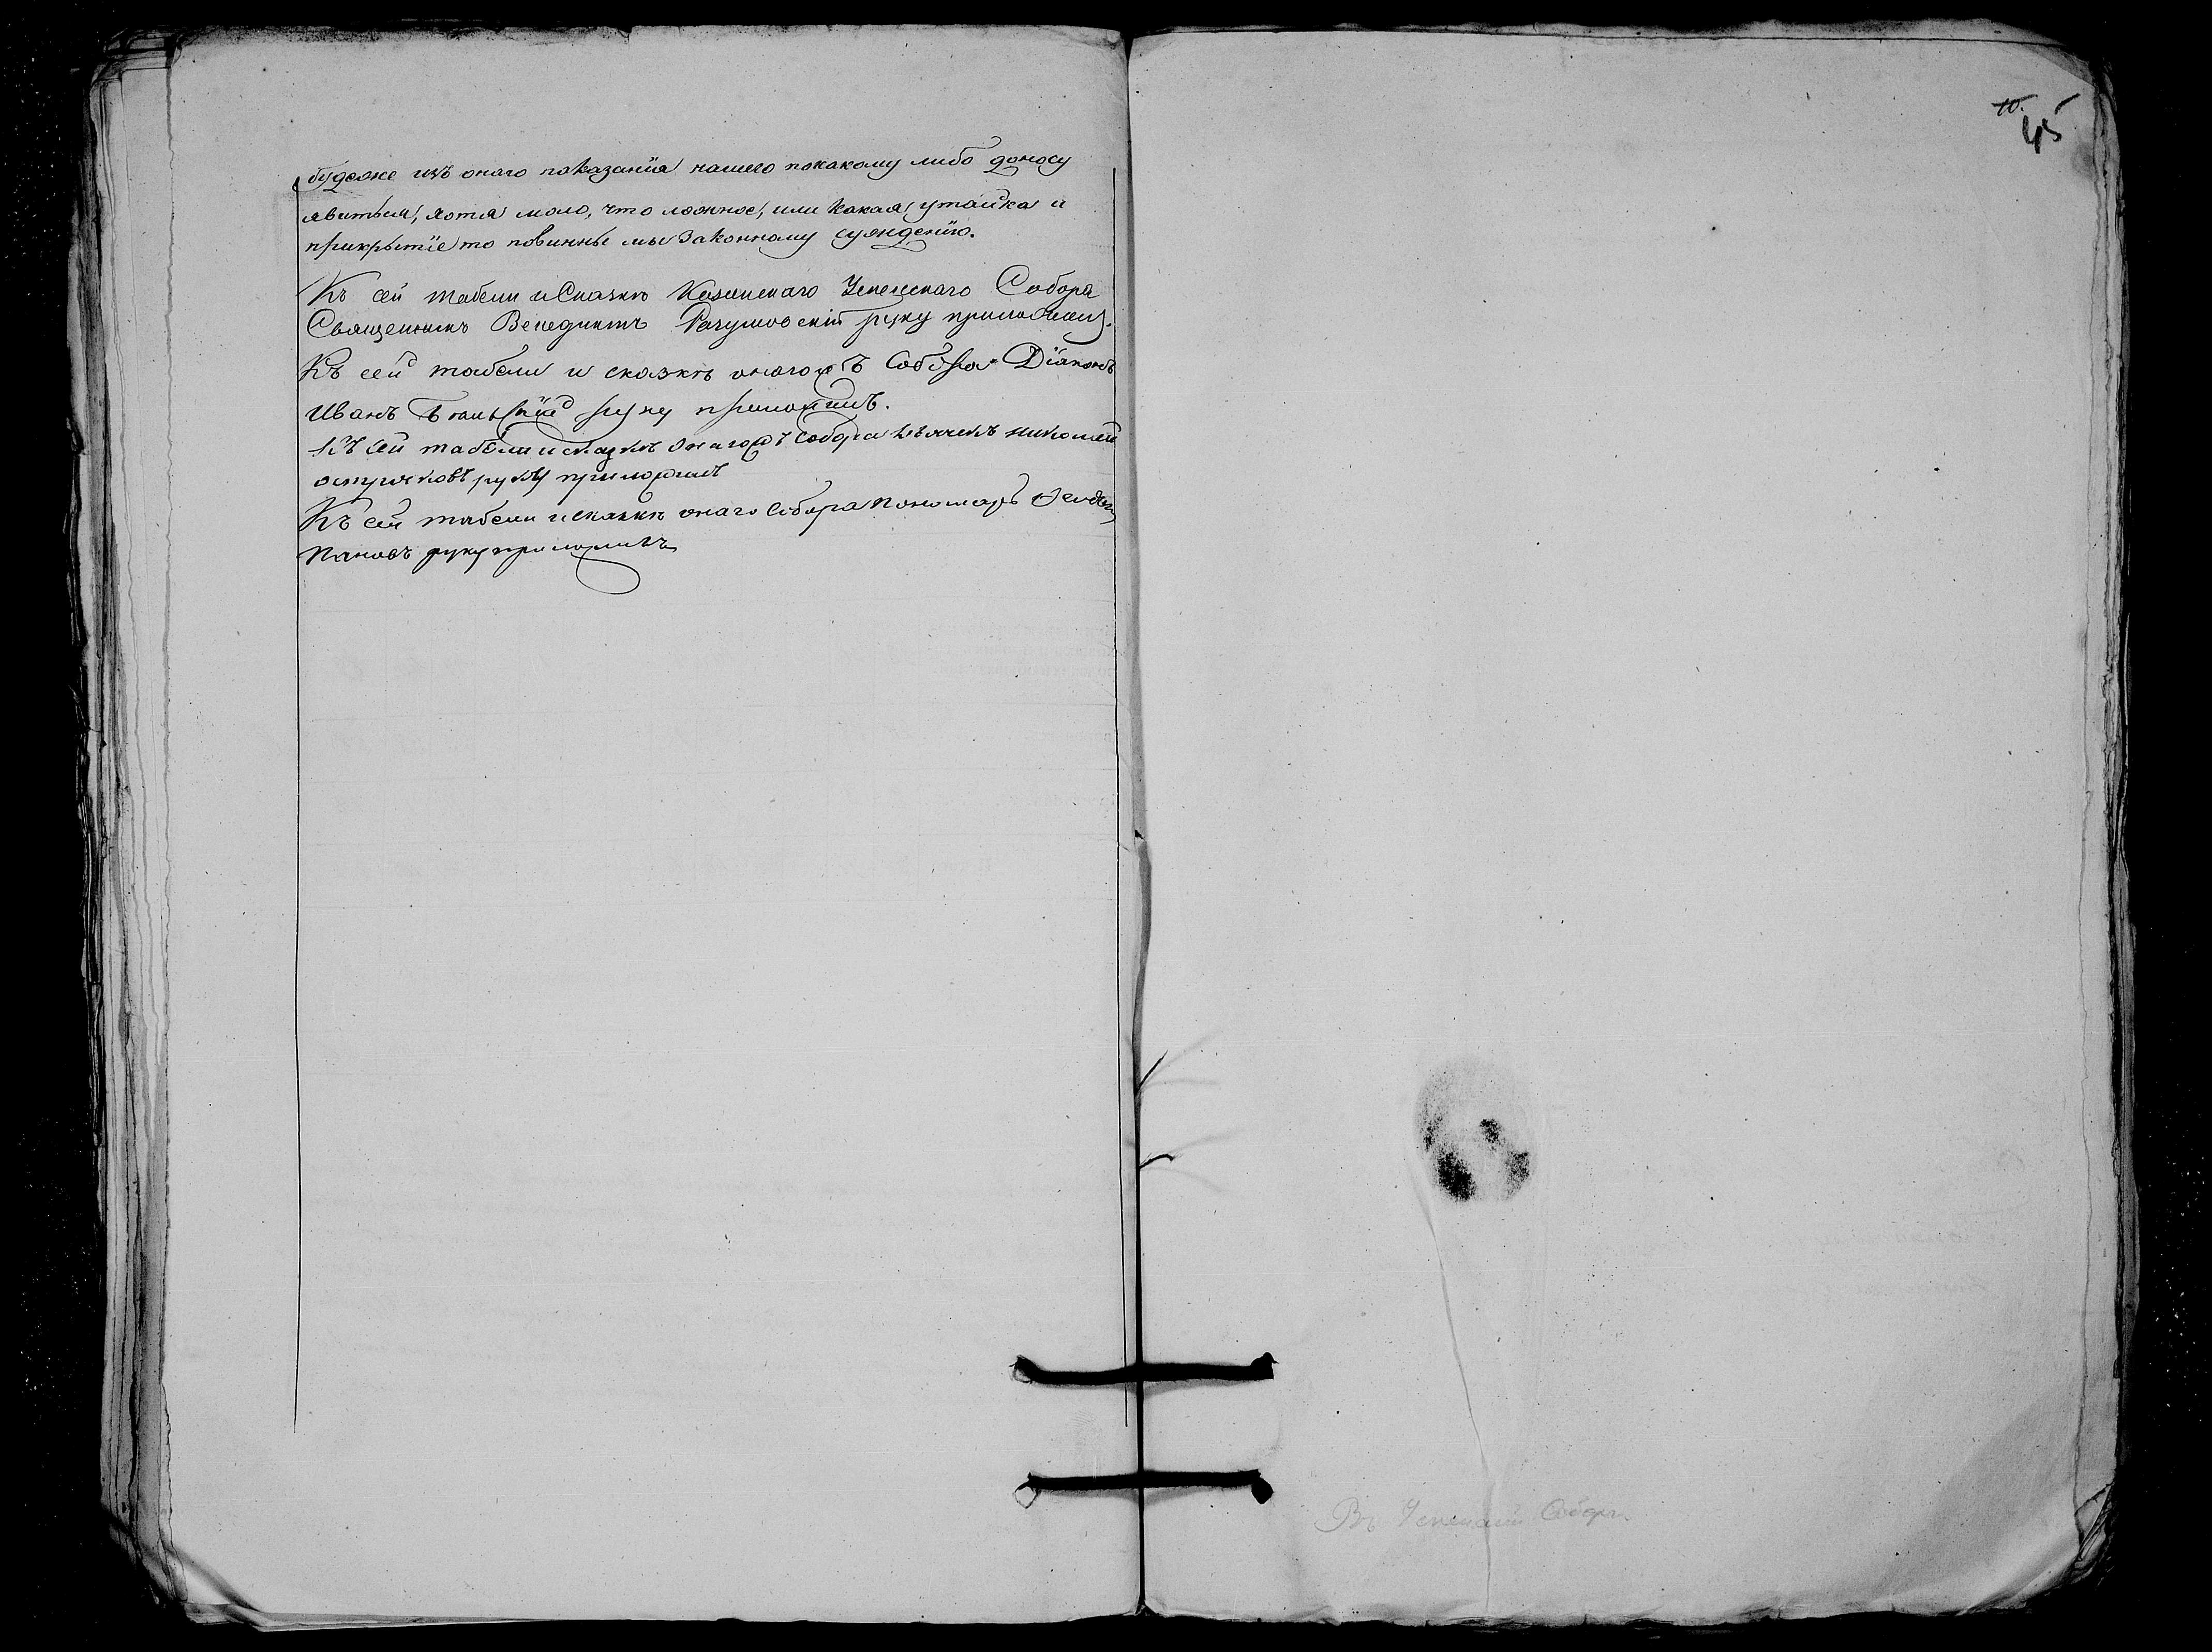 будеже изъ онаго показанїя нашего покакому либо доносу
явитъся, хотя мало, что ложное, или какая утайка и
прикрытїе то повинны мы Законному сужденїю.
Къ сей табели и Сказкѣ Успенскаго Собора
Священникъ Венедиктъ руку приложилъ.
Къ сей табели и сказкѣ онагожъ Собора Дїаконъ
Иванъ руку приложилъ.
Къ сей табели и сказкѣ онагожъ собора дьячекъ николай
руку приложилъ
Къ сей табели и сказкѣ онаго собора пономарь
Пановъ руку приложилъ
10.
45
Въ Успенский Соборъ